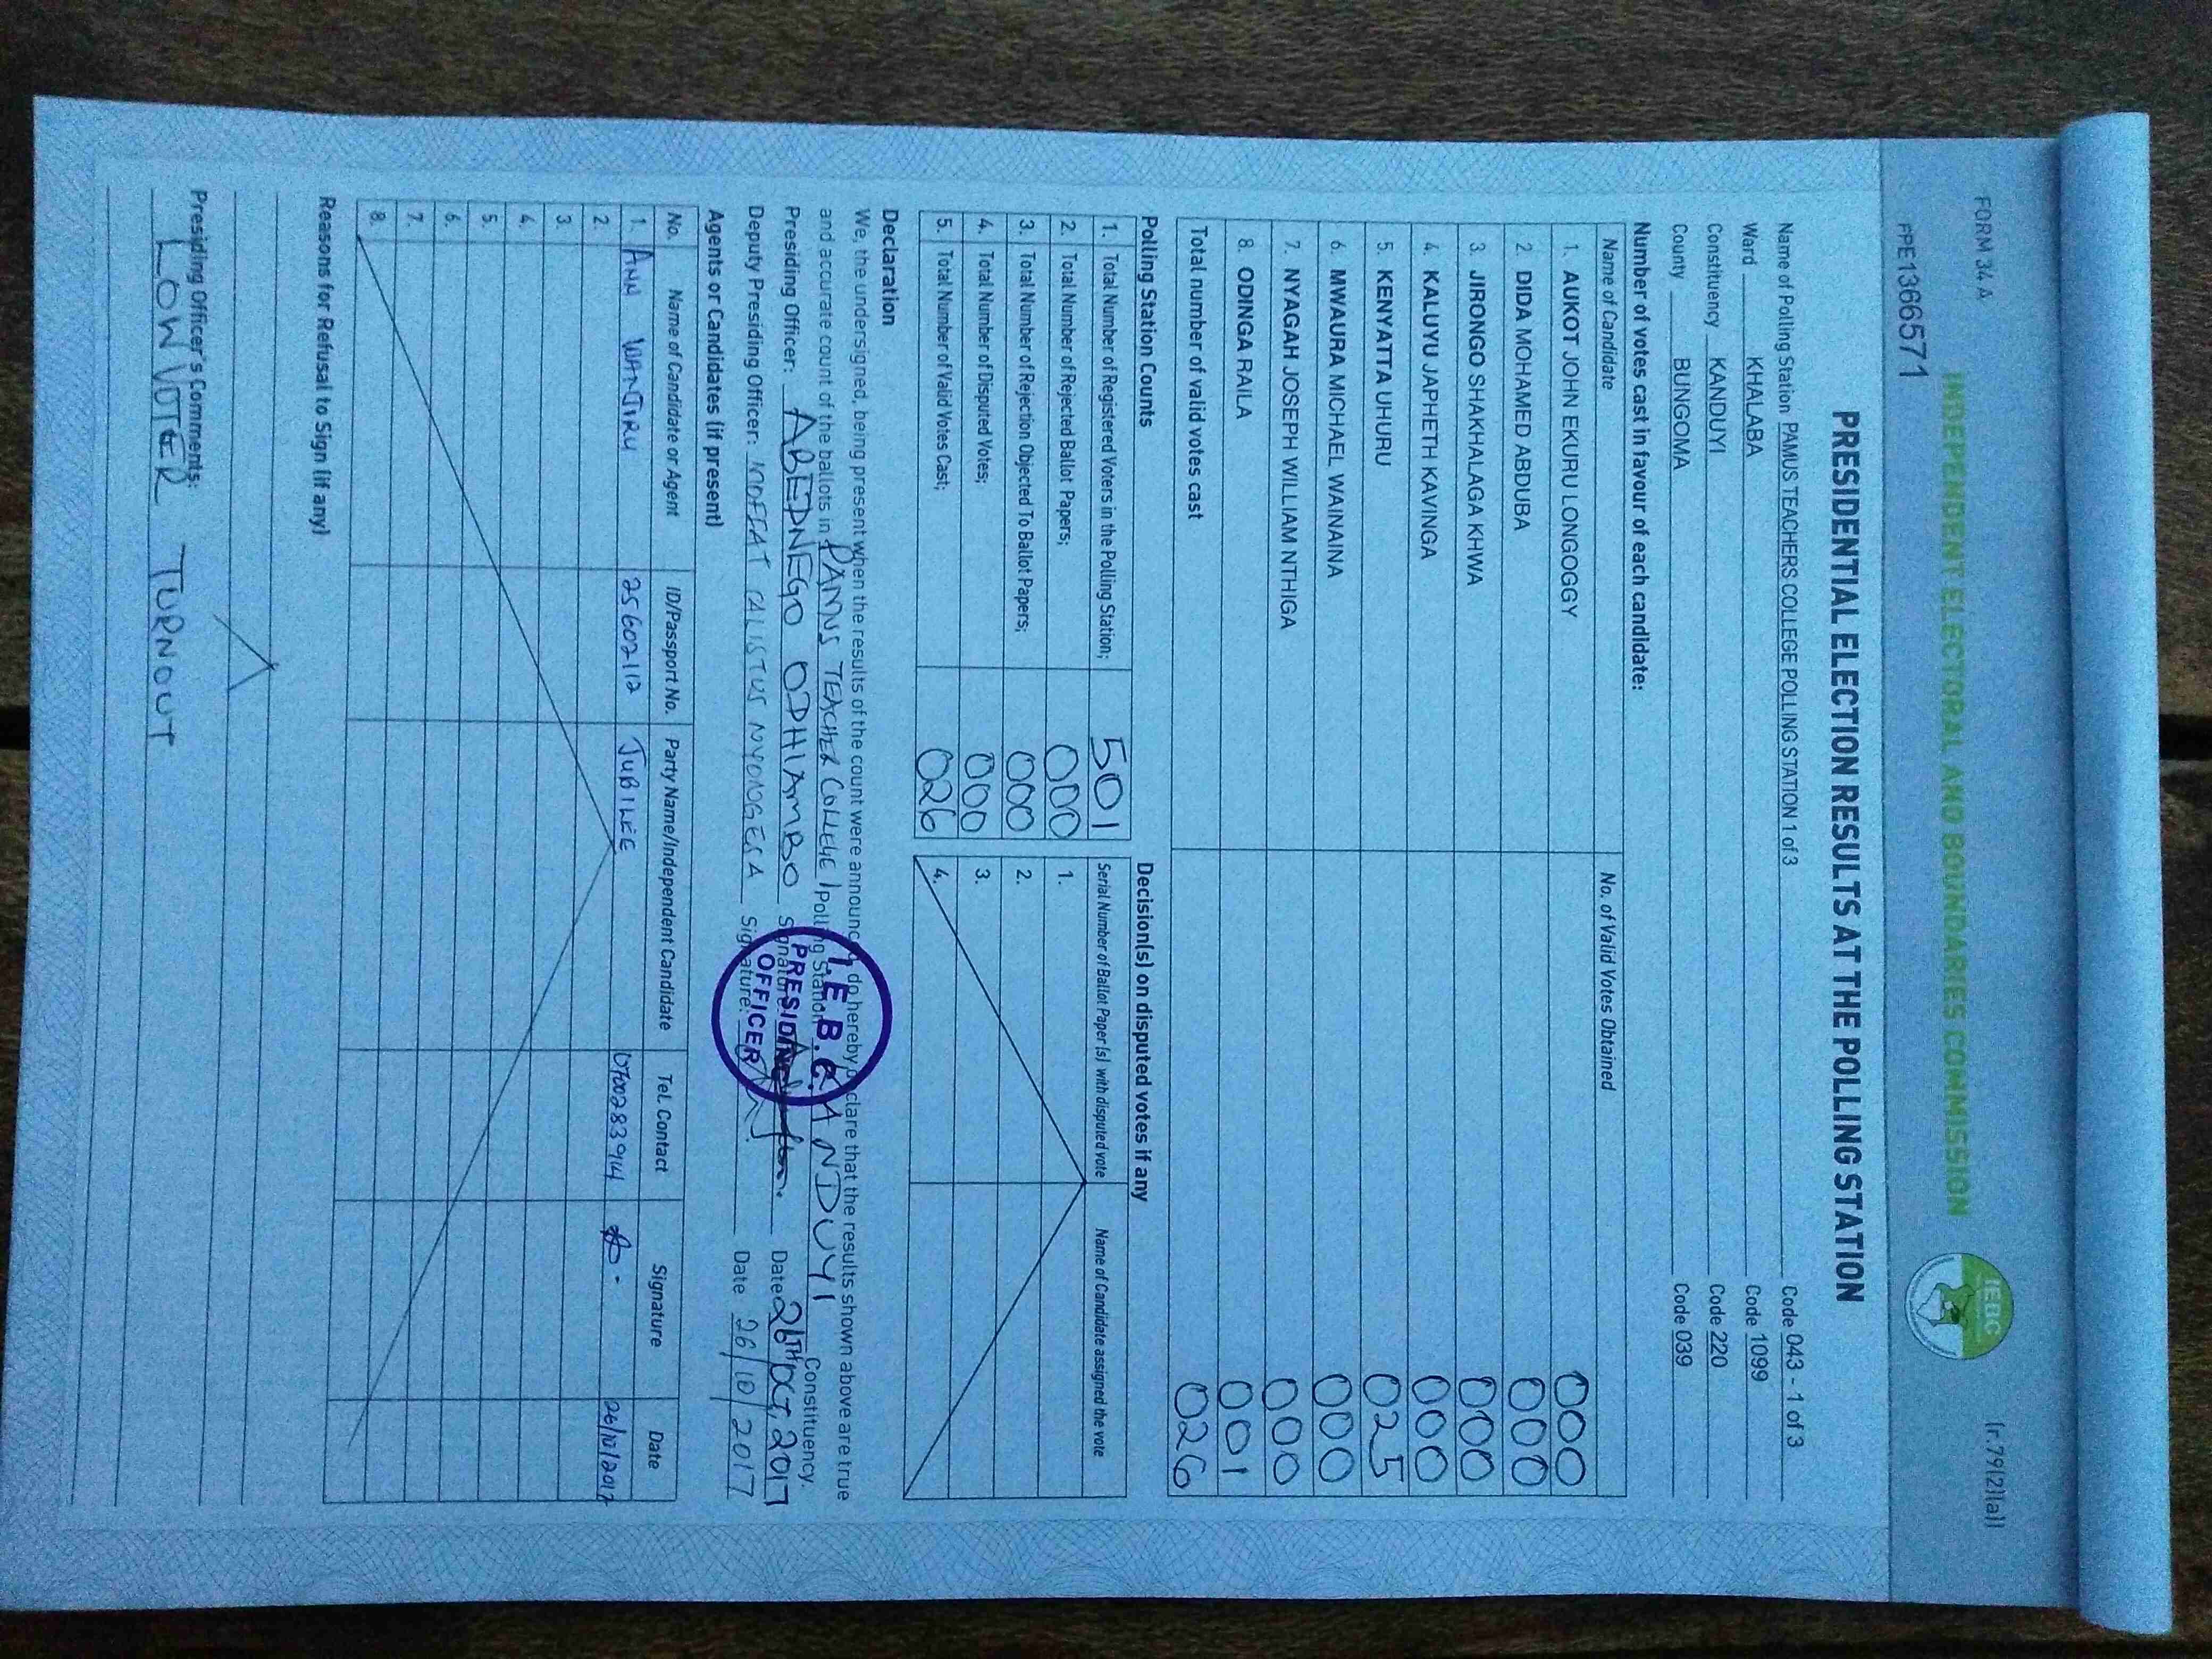 FORM 34 A
(r.79(2)(a))
INDEPENDENT ELECTORAL AND BOUNDARIES COMMISSION
IEBC
PPE1366571
PRESIDENTIAL ELECTION RESULTS AT THE POLLING STATION
Name of Polling Station PAMUS TEACHERS COLLEGE POLLING STATION 1 of 3 Code 043 - 1 of 3
Ward KHALABA Code 1099
Constituency KANDUYI Code 220
County BUNGOMA Code 039
Number of votes cast in favour of each candidate:
Name of Candidate No. of Valid Votes Obtained
1. AUKOT JOHN EKURU LONGOGGY 000
2. DIDA MOHAMED ABDUBA 000
3. JIRONGO SHAKHALAGA KHWA 000
4. KALUYU JAPHETH KAVINGA 000
5. KENYATTA UHURU 025
6. MWAURA MICHAEL WAINAINA 000
7. NYAGAH JOSEPH WILLIAM NTHIGA 000
8. ODINGA RAILA 001
Total number of valid votes cast 026
Polling Station Counts
1. Total Number of Registered Voters in the Polling Station; 501
2. Total Number of Rejected Ballot Papers; 000
3. Total Number of Rejection Objected To Ballot Papers; 000
4. Total Number of Disputed Votes; 000
5. Total Number of Valid Votes Cast; 026
Decision(s) on disputed votes if any
Serial Number of Ballot Paper (s) with disputed vote Name of Candidate assigned the vote
1.
2.
3.
4.
Declaration
We, the undersigned, being present when the results of the count were announced, do hereby declare that the results shown above are true
and accurate count of the ballots in PAMUS TEACHER COLLEGE Polling Station KANDUYI Constituency.
Presiding Officer: ABEDNEGO ODHIAMBO Signature Date 26TH OCT, 2017
Deputy Presiding Officer: MOFFAT CALISTUS NYOMOGESA Signature: Date 26/10/2017
I.E.B.C.
PRESIDING
OFFICER
Agents or Candidates (if present)
No. Name of Candidate or Agent ID/Passport No. Party Name/Independent Candidate Tel. Contact Signature Date
1. ANN WANJIRU 25602112 JUBILEE 0700283914 26/10/2017
2.
3.
4.
5.
6.
7.
8.
Reasons for Refusal to Sign (if any)
Presiding Officer's Comments:
LOW VOTER TURNOUT